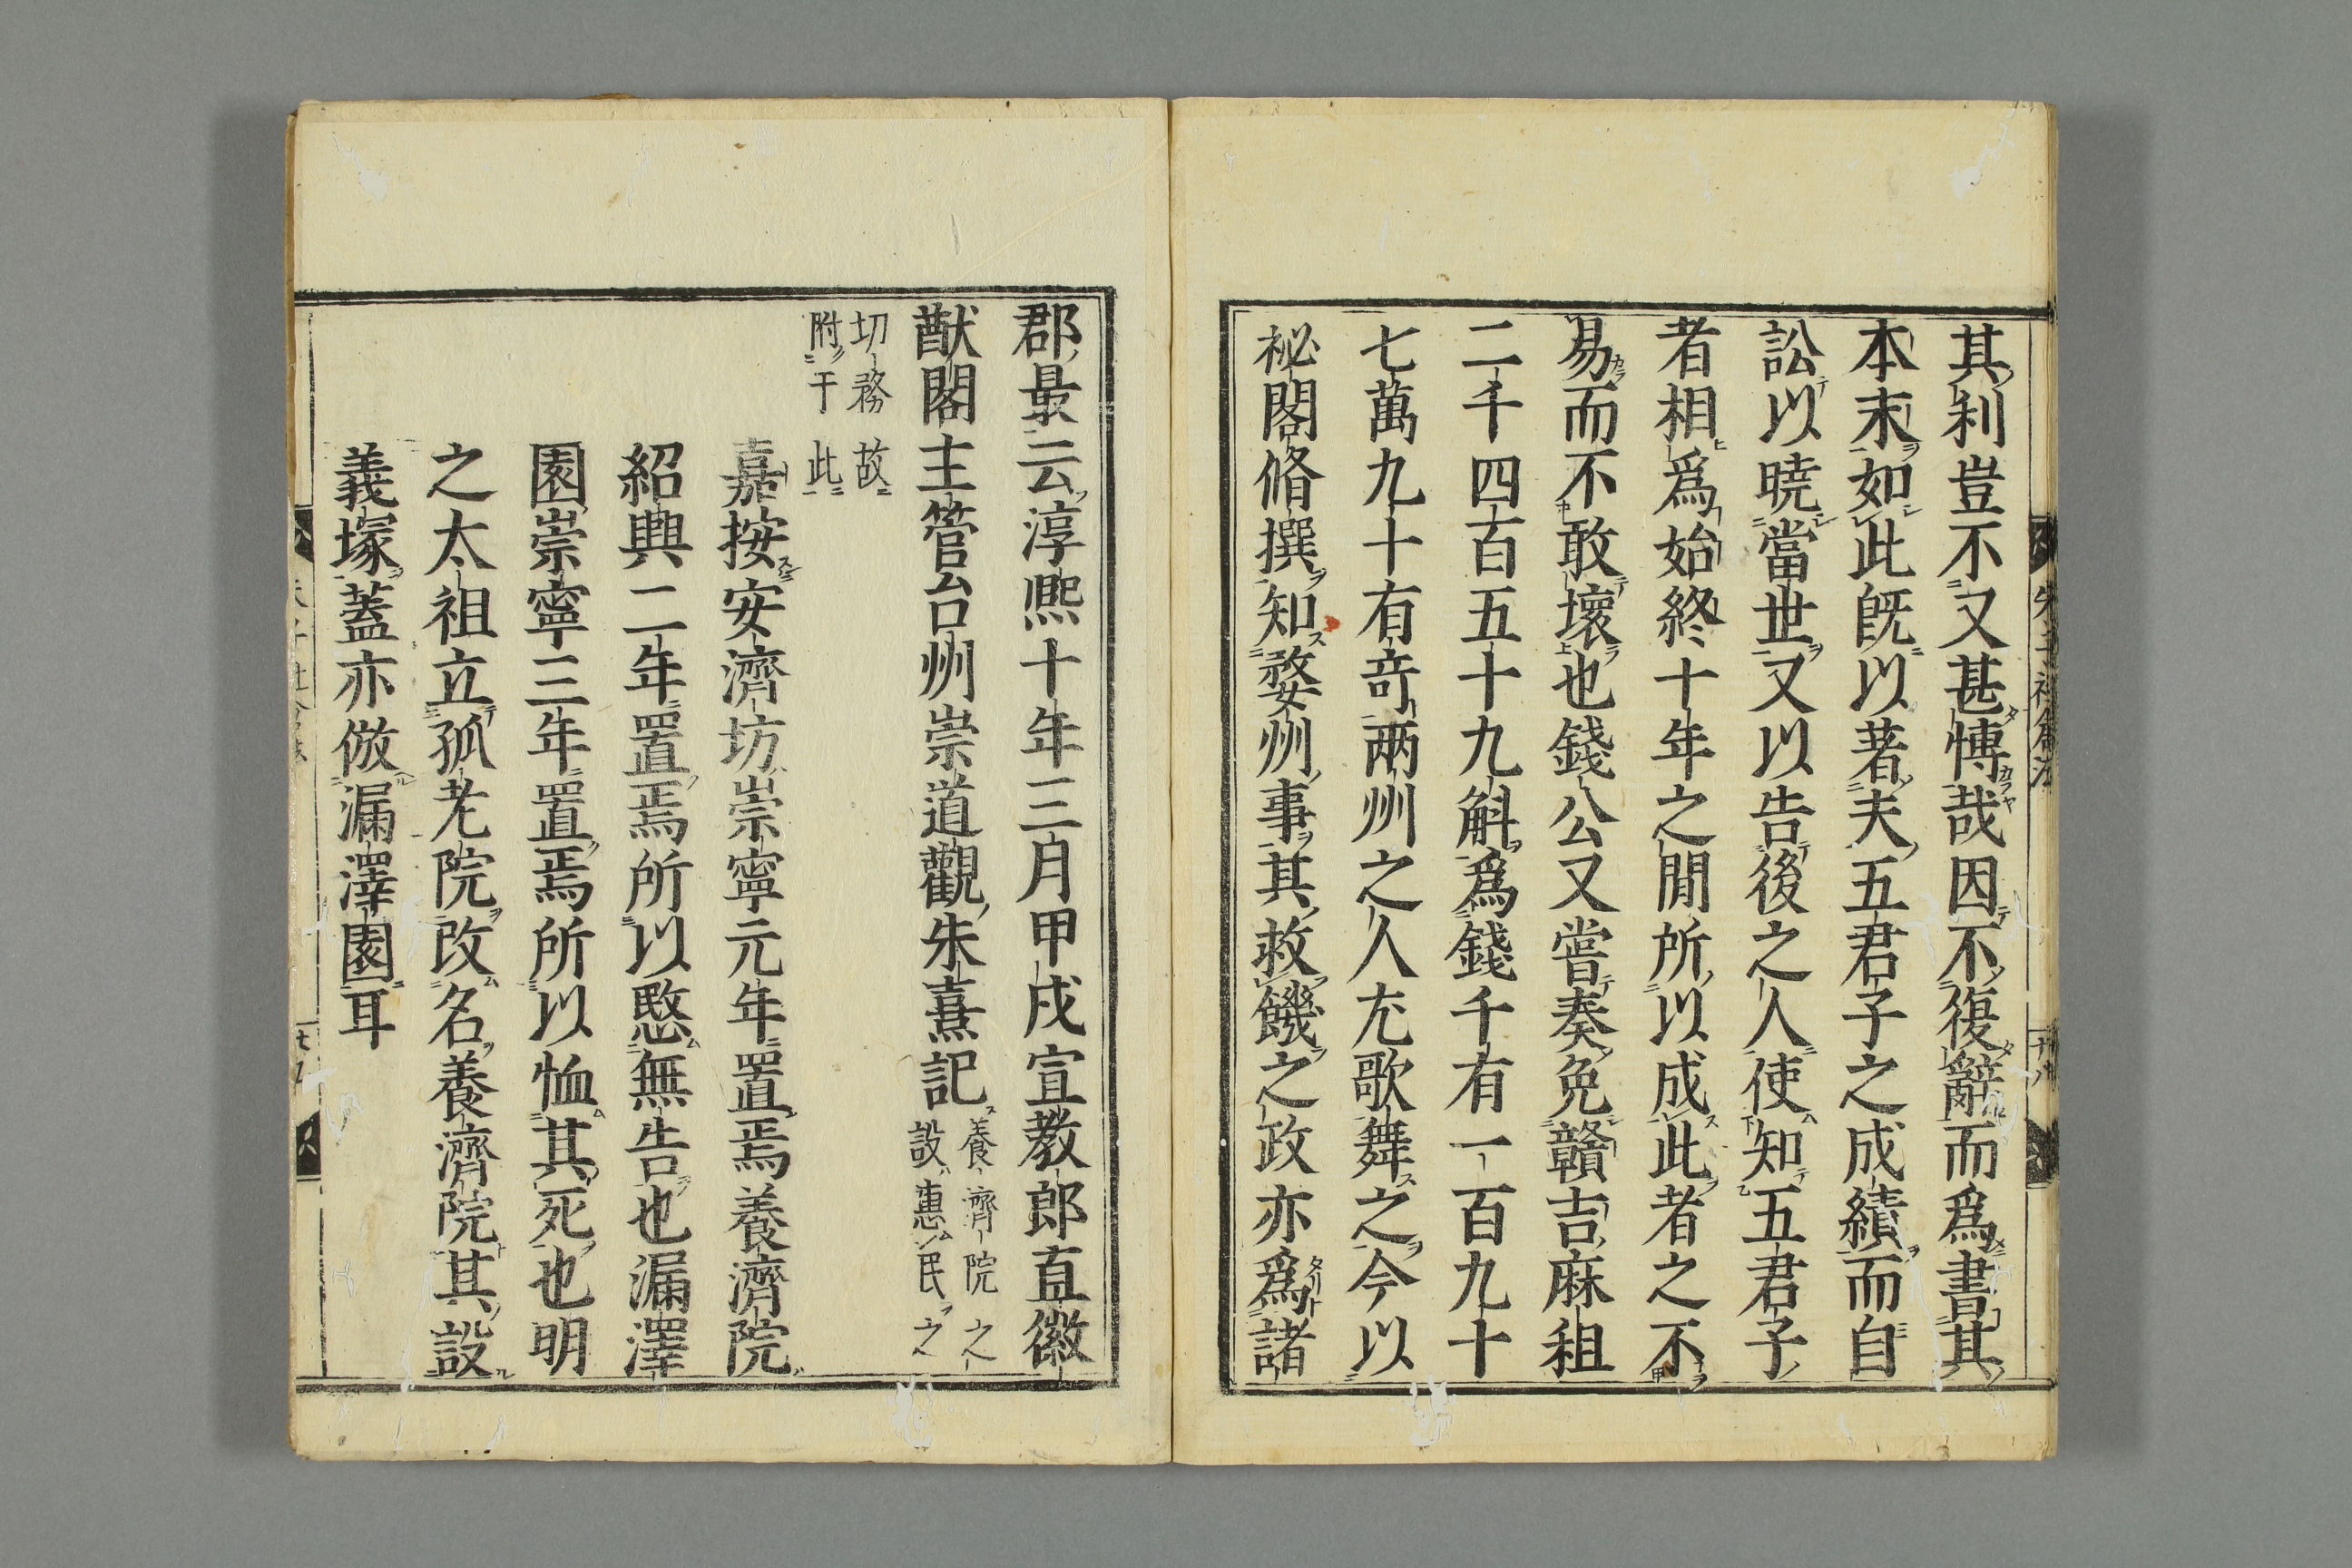 其利豈不又甚愽哉因不復辭而爲書其
本末如此旣以著夫五君子之成績而自
訟以曉當世又以告後之人使知五君子
者相爲始終十年之閒所以成此者之不
易而不敢壞也錢公又嘗奏免贛吉麻租
二千四百五十九斛爲錢千有一百九十
七萬九十有竒兩州之人尢歌舞之今以
祕閣脩撰知婺州事其救饑之政亦爲諸
郡最云淳熙十年三月甲戌宣教郎直徽
猷閣主管台州崇道觀朱熹記
養濟院之
設惠民之
切務故
附于此
嘉按安濟坊崇寧元年置焉養濟院
紹興二年置焉所以愍無告也漏澤
園崇寧三年置焉所以恤其死也明
之太祖立孤老院改名養濟院其設
義塚蓋亦倣漏澤園耳